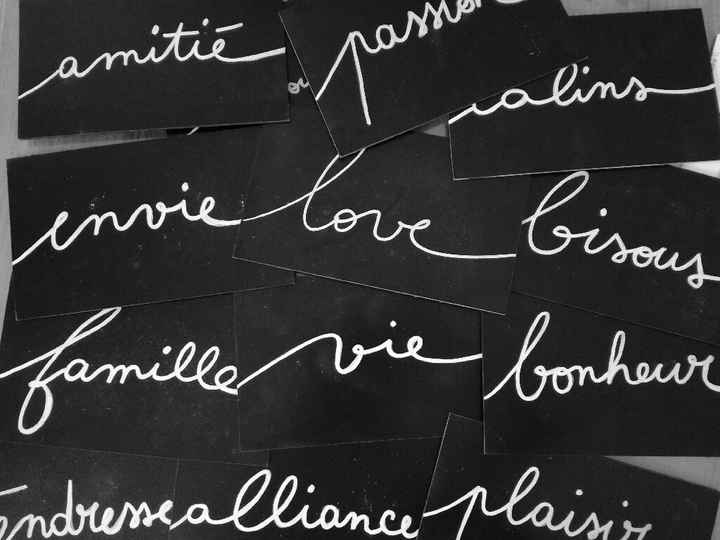 amitié passion calins
envie love bisous
famille vie bonheur
endresse alliance plaisir